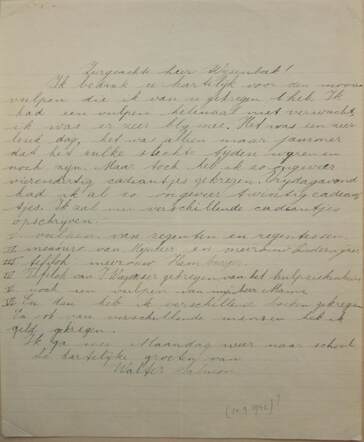 Zeergeachte heer Wijsenbeek!
Ik bedank u hartelijk voor den mooien
vulpen die ik van u gekregen heb. Ik
had een vulpen helemaal niet verwacht
ik was er zeer blij mee. Het was een zeer
leuke dag, het was alleen maar jammer
dat het zulke slechte tijden waren en
nog zijn. Maar toch heb ik zo ongeveer
veertig cadeautjes gekregen. Vrijdagavond
had ik al zo ongeveer twintig cadeau
tjes. Ik zal u verschillende cadeautjes
opschrijven
I vulpen van regenten en regentessen.
II van Meneer en mevrouw
III mevrouw Hamburger
IV gekregen van het hulpziekenhuis
V nog een vulpen van mijnheer
VI En dan heb ik verschillende boeken gekregen
En ook van verschillende mensen heb ik
geld gekregen.
Ik ga nu Maandag weer naar school
De hartelijke groeten van
Walter Salmon